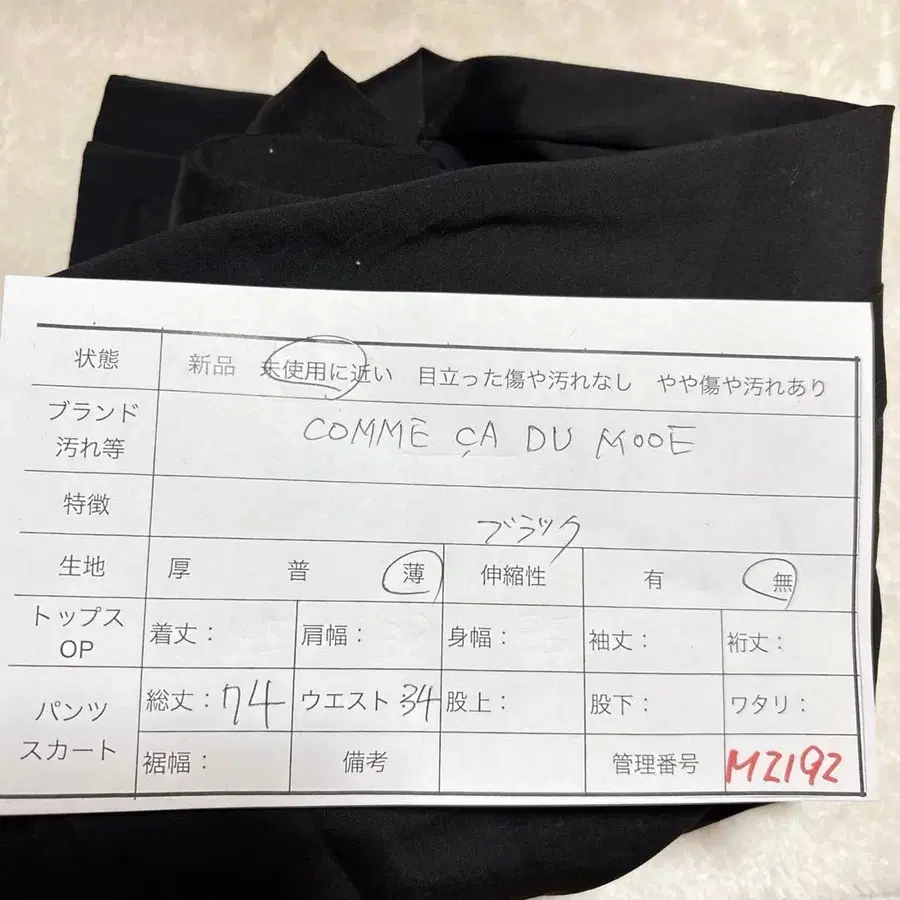 状態 新品 未使用に近い 目立った傷や汚れなし やや傷や汚れあり
ブランド
汚れ等
COMME ÇA DU MODE
特徴 ブラック
生地 厚 普 薄 伸縮性 有 無
トップス
OP
着丈： 肩幅： 身幅： 袖丈： 裄丈：
パンツ
スカート
総丈：74 ウエスト：34 股上： 股下： ワタリ：
裾幅： 備考 管理番号 MZ192